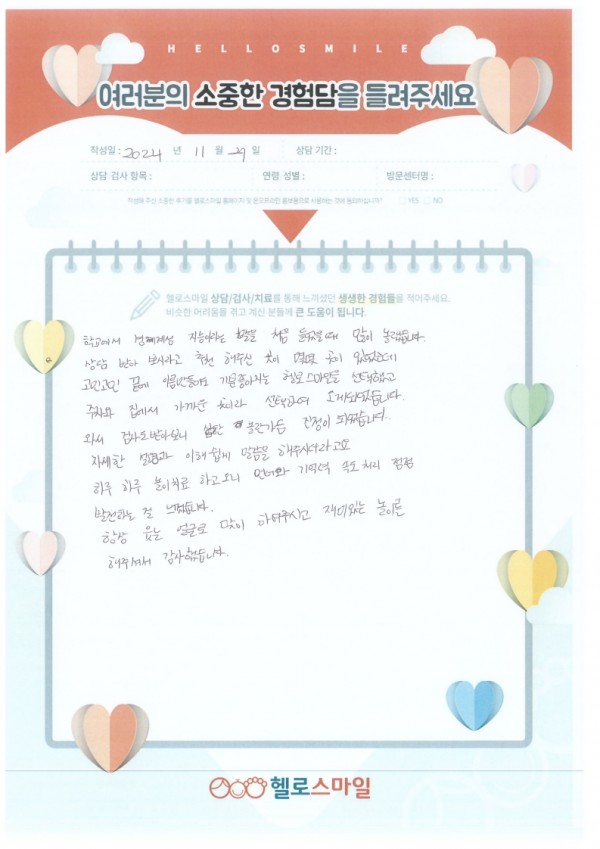 HELLOSMILE
여러분의 소중한 경험담을 들려주세요
작성일 : 2024 년 11 월 29 일 상담 기간 :
상담 검사 항목 : 연령 성별 : 방문센터명 :
작성해 주신 소중한 후기를 헬로스마일 홈페이지 및 온오프라인 홍보물으로 사용하는 것에 동의하십니까? YES NO
헬로스마일 상담/검사/치료를 통해 느끼셨던 생생한 경험들을 적어주세요.
비슷한 어려움을 겪고 계신 분들께 큰 도움이 됩니다.
학교에서 경계성 지능이라는 말을 처음 들었을때 많이 놀랬습니다.
상담 받아 보시라고 추천 해주신 곳이 몇몇 곳이 있었는데
고민고민 끝에 이름만들어도 기분좋아지는 헬로스마일을 선택했고
주차와 집에서 가까운 곳이라 선택하여 오게되었습니다.
와서 검사도받아보니 불안가득 진정이 되었습니다.
자세한 설명과 이해쉽게 말씀을 해주시더라고요
하루 하루 놀이치료 하고오니 언어와 기억력 속도처리 점점
발전하는 걸 느꼈습니다.
항상 웃는 얼굴로 맞이 하여주시고 재미있는 놀이를
해주셔서 감사했습니다.
헬로스마일